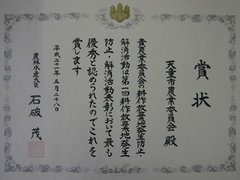 賞状
天童市農業委員会 殿
貴農業委員会の耕作放棄地発生防止
解消活動は第一回耕作放棄地発生
防止・解消活動表彰において最も
優秀と認められたのでこれを
賞します
平成二十一年五月二十八日
農林水産大臣 石破 茂